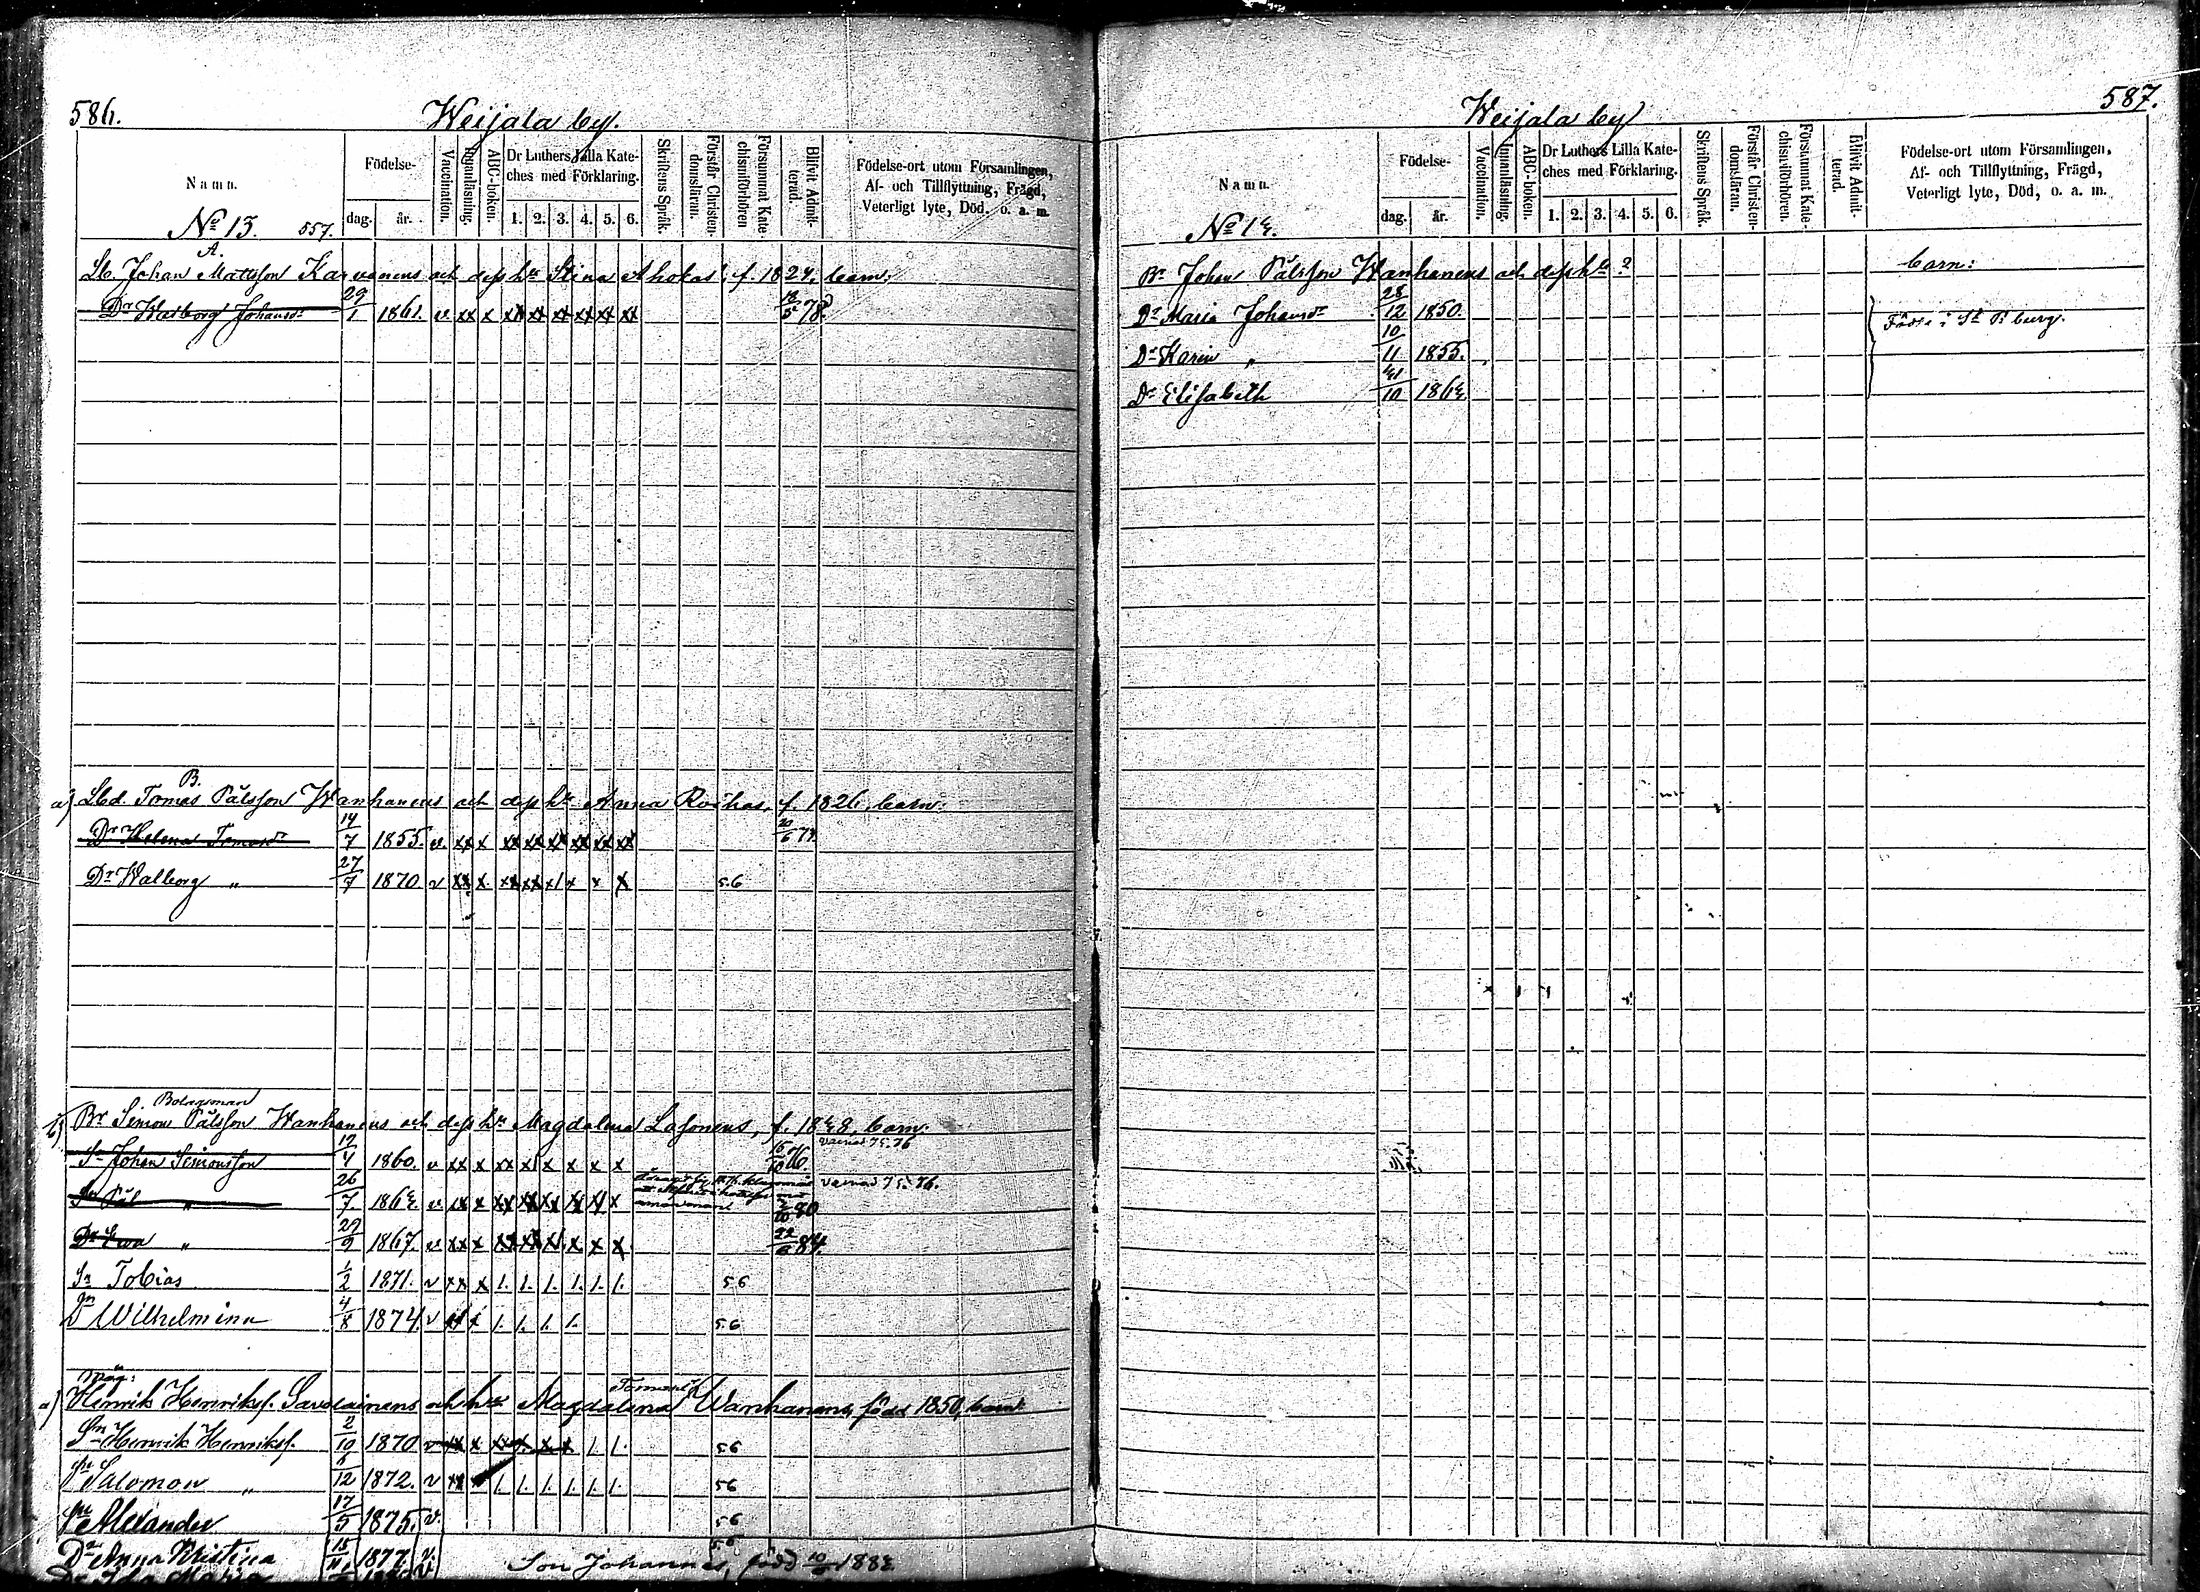 586.
Weijala by.
Namn.
Födelse-
dag.
år.
Vaccination.
Innanläsning.
ABC-boken.
Dr Luthers Lilla Kate-
ches med Förklaring.
1. 2. 3. 4. 5. 6.
Skriftens Språk.
Förstår Christen-
domsläran.
Försummat Kate-
chismiförhören
Blifvit Admit-
terad.
Födelse-ort utom Församlingen,
Af- och Tillflyttning, Frägd,
Veterligt lyte, Död, o. a. m.
No 13. 557.
A.
Johan Mattsson Karvanens och dess hu Stina Ahokas, f. 1824, barn:
Dr Walborg Johansdr 29/1 1861. v xx x xx xx xx xx xx xx 78
B.
a) Tomas Pålsson Wanhanens och dess hu Anna Roihas, f. 1826, barn:
Dr Helena Tomasdr 14/7 1855. v. xx x xx xx xx xx xx xx
Dr Walborg " 27/7 1870 v xx x xx xx x/ x x x 56
Bolagsman
b) Br Simon Pålsson Wanhanens och dess hu Magdalena Lasonens, f. 1848, barn:
Sn Johan Simonsson 12/4 1860. v xx x xx x x x x x 76.
Sn Pål " 26/7 1864. v 80
Dr Eva " 29/9 1867. v xx x 22/6 84.
Sn Tobias 1/2 1871. v xx x 1. 1. 1. 1. 1. 1. 56
Dr Wilhelmina 4/8 1874. v 1. 1. 1. 1. 56
måg:
a) Henrik Henrikss. Savolainens och hu Magdalena Tomasdr Wanhanens, född 1850, barn:
Sn Henrik Henrikss. 2/10 1870 v 1. 1. 56
Sn Salomon " 6/12 1872. v xx 1. 1. 1. 1. 1. 1. 56
Sn Alexander 17/5 1875. v. 56
Dr Anna Kristina 15/11 1877. v. 56
Son Johannes, född
587.
Weijala by
Namn.
Födelse-
dag.
år.
Vaccination.
Innanläsning.
ABC-boken.
Dr Luthers Lilla Kate-
ches med Förklaring.
1. 2. 3. 4. 5. 6.
Skriftens Språk.
Förstår Christen-
domsläran.
Försummat Kate-
chismiförhören.
Blifvit Admit-
terad.
Födelse-ort utom Församlingen,
Af- och Tillflyttning, Frägd,
Veterligt lyte, Död, o. a. m.
No 14.
Br Johan Pålsson Wanhanens och dess hu ? barn:
Dr Maria Johansdr 28/12 1850.
Dr Karin " 10/11 1855.
Dr Elisabeth 10 1864
Födde i St P:burg.